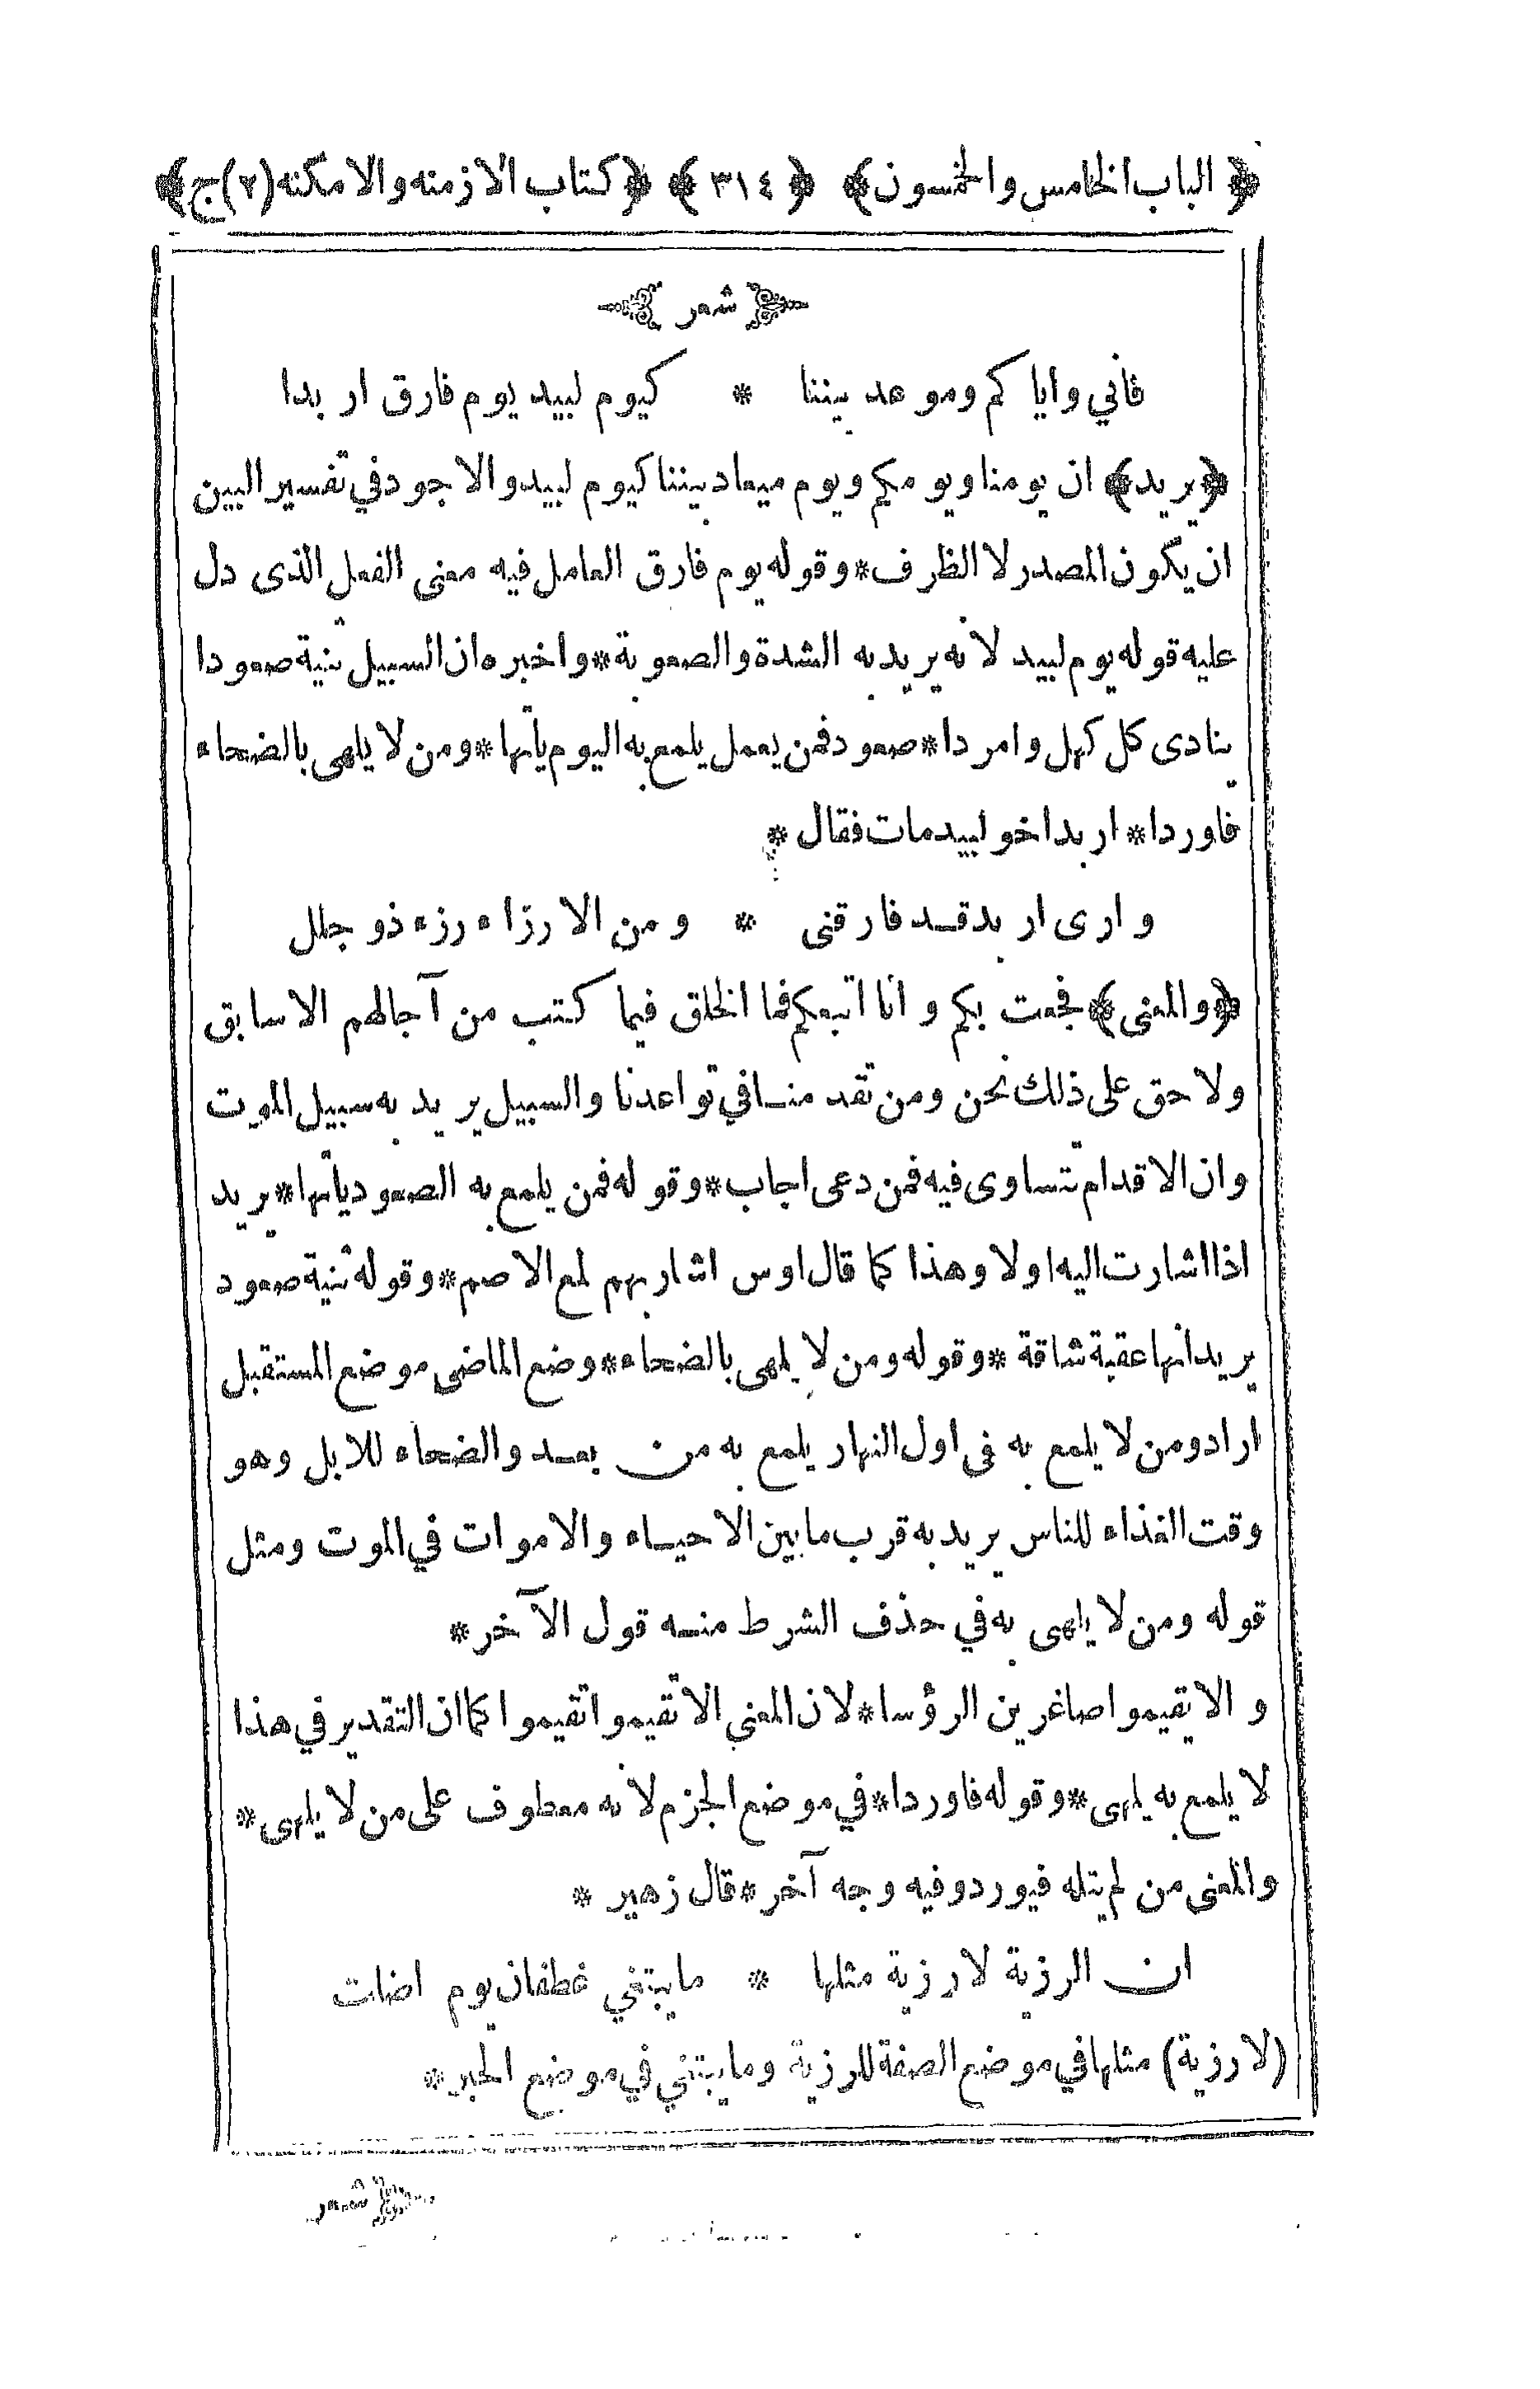 ﴿ الباب الخامس والخمسون﴾ ﴿ ٣١٤ ﴾ ﴿كتاب الازمنه والامكنه (٢) ج﴾
شعر
فاني وايا كم وموعد بيننا * كيوم لبيد يوم فارق اربدا
﴿يريد﴾ ان يومنا ويومكم ويوم ميعاد بيننا كيوم لبيد والاجود في تفسير البين
ان يكون المصدر لا الظرف* وقوله يوم فارق العامل فيه معنى الفعل الذى دل
عليه قوله يوم لبيد لانه يريد به الشدة والصعوبة* واخبره ان السبيل ثنية صعودا
ينادى كل كهل وامردا* صعود فمن يعمل يلمع به اليوم يأتها* ومن لا يلهى بالضحاء
فاوردا* اربد اخو لبيد مات فقال *
وارى اربد قد فارقنى * ومن الارزاء رزء ذو جلل
﴿والمعنى﴾ فجعت بكم وانا اتبعكم فما الخلق فيما كتب من آجالهم الا سابق
ولاحق على ذلك نحن ومن تقد منا في تواعدنا والسبيل يريد به سبيل الموت
وان الاقدام تتساوى فيه فمن دعى اجاب* وقوله فمن يلمع به الصعود يأتها* يريد
اذا اشارت اليه اولا وهذا كما قال اوس اشار بهم لمع الاصم* وقوله ثنية صعود
يريد انها عقبة شاقة * وقوله ومن لا يلهى بالضحاء* وضع الماضى موضع المستقبل
اراد ومن لا يلمع به فى اول النهار يلمع به من بعد والضحاء للابل وهو
وقت الغذاء للناس يريد به قرب ما بين الاحياء والاموات في الموت ومثل
قوله ومن لا يلهى به في حذف الشرط منه قول الآخر*
والا تقيموا صاغرين الرؤسا* لان المعنى الا تقيموا تقيموا كما ان التقدير في هذا
لا يلمع به يلهى* وقوله فاوردا* في موضع الجزم لانه معطوف على من لا يلهى*
والمعنى من لم يتله فيورد وفيه وجه آخر* قال زهير *
ان الرزية لا رزية مثلها * ما يبتغي غطفان يوم اضلت
(لا رزية) مثلها في موضع الصفة للرزية وما يبتغي في موضع الخبر*
شعر